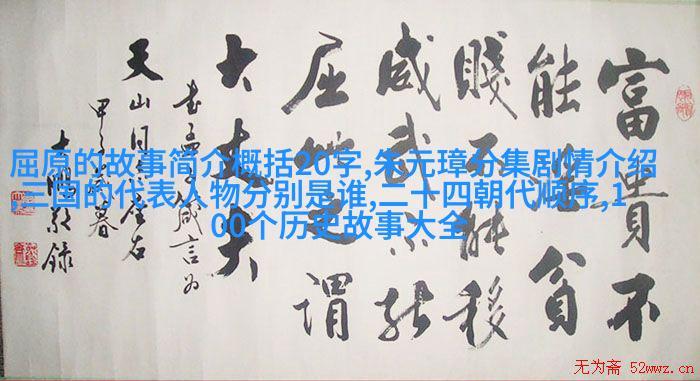 富貴不
能淫貧
賤不能移
威武不能
屈此之謂
大丈夫
書孟子箴言为
天山同志座右
甲子歲暮
屈原的故事简介概括20字,朱元璋分集剧情介绍
,三国的代表人物分别是谁,二十四朝代顺序,1
00个历史故事大全
无为斋 52wwz.cn